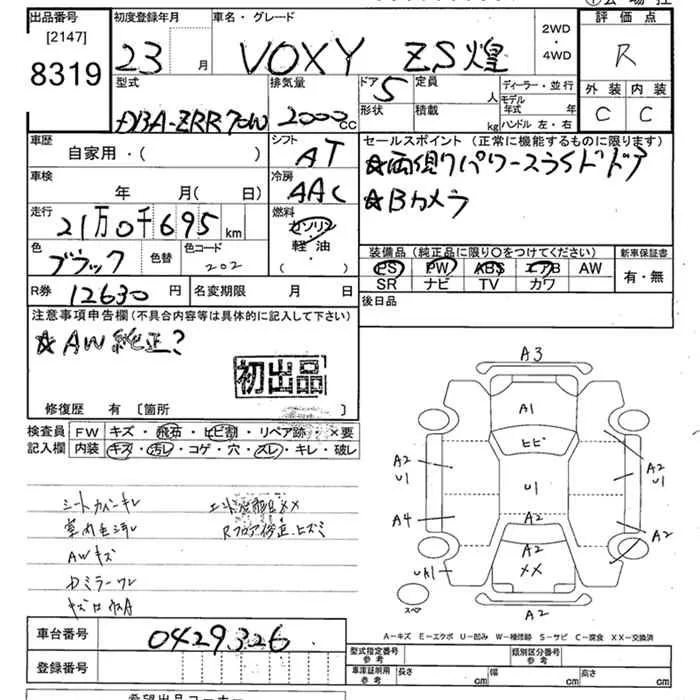 出品番号 初度登録年月 車名・グレード 2WD・4WD 評価点
[2147]
8319
23 月 VOXY ZS煌 R
外装 内装
C C
型式 排気量 ドア 定員 人 ディーラー・並行
DBA-ZRR70W 2000cc 5 形状 積載 kg モデル年式 年
ハンドル 左・右
車歴 シフト セールスポイント (正常に機能するものに限ります)
自家用・( ) AT ☆両側パワースライドドア
車検 冷房 ☆Bカメラ
年 月( 日) AAC
走行 燃料
21万0千695km ガソリン・軽油・( )
色 色替 色コード
ブラック 202
装備品 (純正品に限り〇をつけてください) 新車保証書
PS PW ABS エアB AW 有・無
SR ナビ TV カワ
R券 12630円 名変期限 月 日 後日品
注意事項申告欄(不具合内容等は具体的に記入して下さい)
☆AW純正?
初出品
修復歴 有 [箇所 ]
検査員記入欄 FW キズ・飛石・ヒビ割・リペア跡・×要
内装 キズ・汚レ・コゲ・穴・スレ・キレ・破レ
A3
A1
ヒビ
A2
U1
A2
U1
U1
A4
A2
A2
A2
XX
A2
スペア
AWキズ
Rフロア修正、ヒズミ
A-キズ E-エクボ U-凹み W-補修跡 S-サビ C-腐食 XX-交換済
車台番号 0429326
型式指定番号 参考 類別区分番号 参考
登録番号
車庫証明用 参考 長さ cm 幅 cm 高さ cm
希望出品コーナー